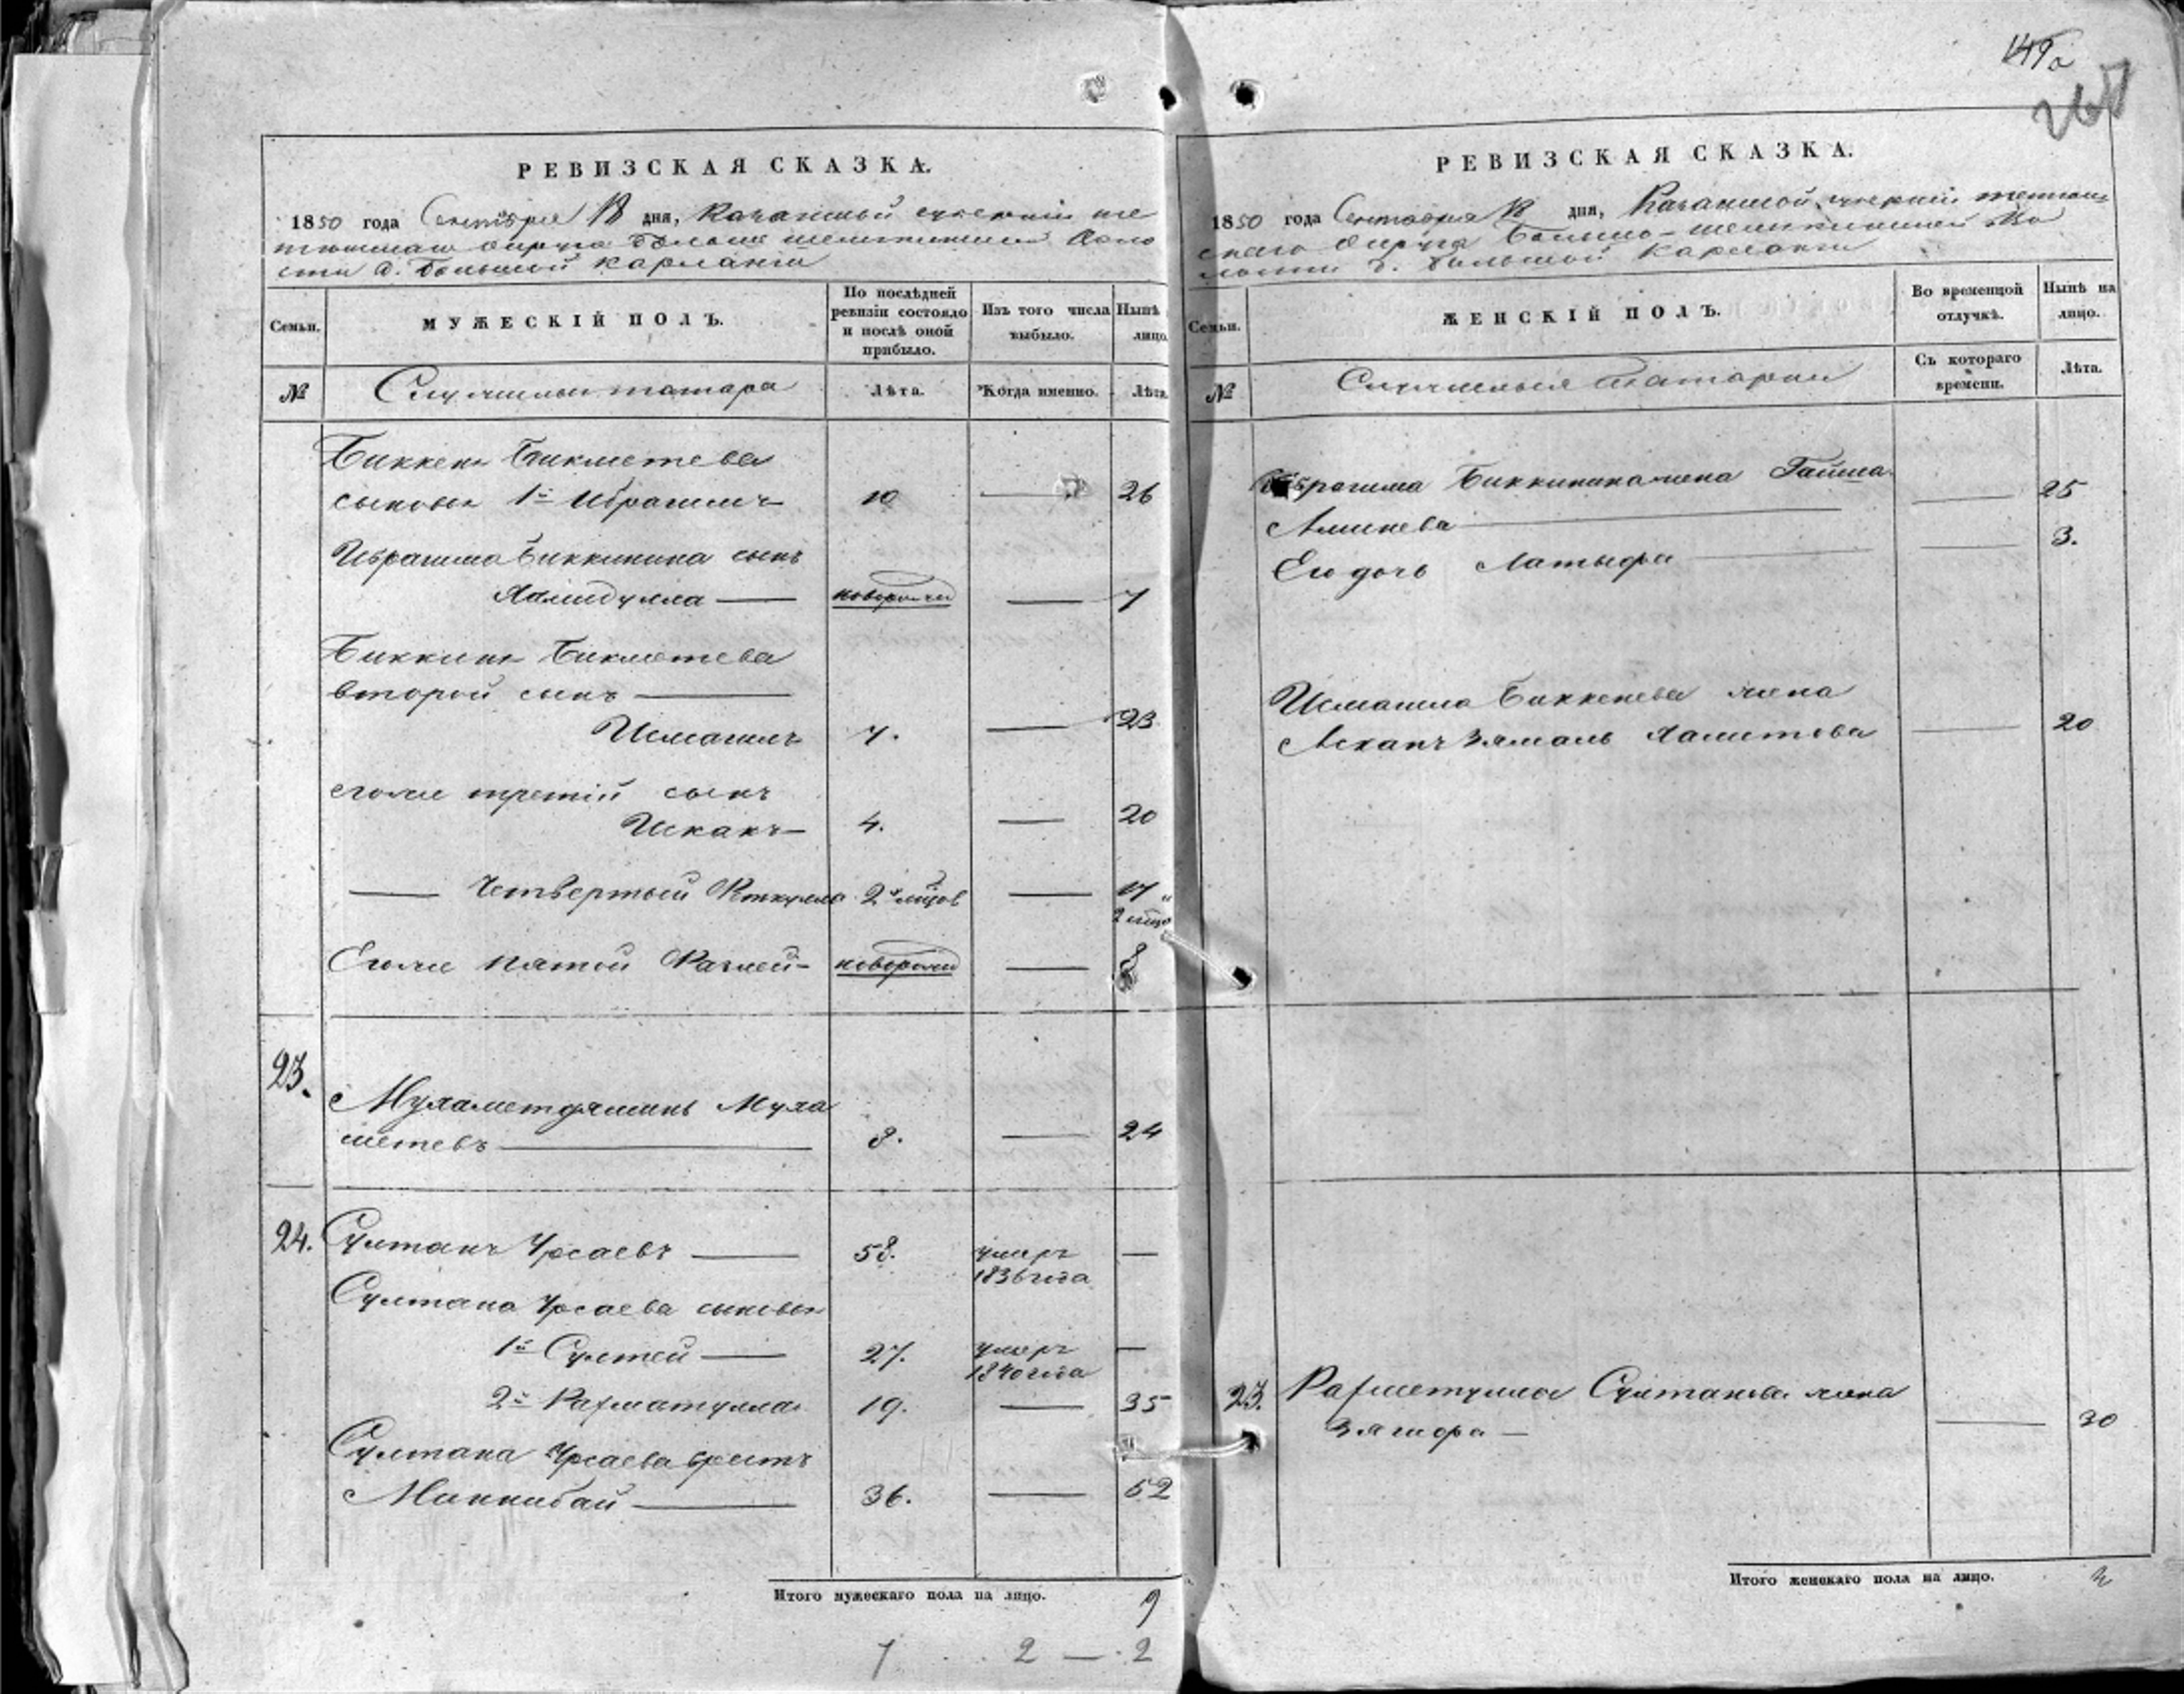 149а
268
РЕВИЗСКАЯ СКАЗКА.
1850 года Сентября 18 дня, Казанской губерніи те
тюшскаго округа Больше Волo
сти д. Большой Карланги
Семьи.
МУЖЕСКІЙ ПОЛЪ.
По послѣдней ревизіи состояло и послѣ оной прибыло.
Изъ того числа выбыло.
Нынѣ лицо.
№
Служилыи татара
Лѣта.
Когда именно.
Лѣта
Биккеня Бикметева
сыновья 1й Ибрагимъ 10 26
Ибрагима Биккинина сынъ
Хамидулла новорожд 7
Биккиня Бикметева
второй сынъ
Исмагилъ 7. 23
егоже третій сынъ
Искакъ 4. 20
Четвертый 2 17
Егоже пятой новорожд 8
23.
Мухаметдяминъ Муха
метевъ 8. 24
24. Султанъ Урсаевъ 58. умеръ
1836 года
Султана Урсаева сыновья
1й Султей 27. умеръ
1840 года
2й Рахматулла 19. 35
Султана Урсаева братъ
Миннибай 36. 52
Итого мужескаго пола на лицо. 9
7 2 — 2
РЕВИЗСКАЯ СКАЗКА.
1850 года Сентября 18 дня, Казанской губерніи тетюш
скаго округа Больше- Во
лости д. Большой Карланги
Семьи.
ЖЕНСКІЙ ПОЛЪ.
Во временной отлучкѣ.
Нынѣ на лицо.
№
Служилыя татарки
Съ котораго времени.
Лѣта.
Ибрагима Биккинина жена Гайша
Аминева 25
Его дочь Латыфа 3.
Исмагила Биккенева жена
Зямаль Хамитова 20
23. Рахметуллы Султанова жена
Зягифа 30
Итого женскаго пола на лицо.